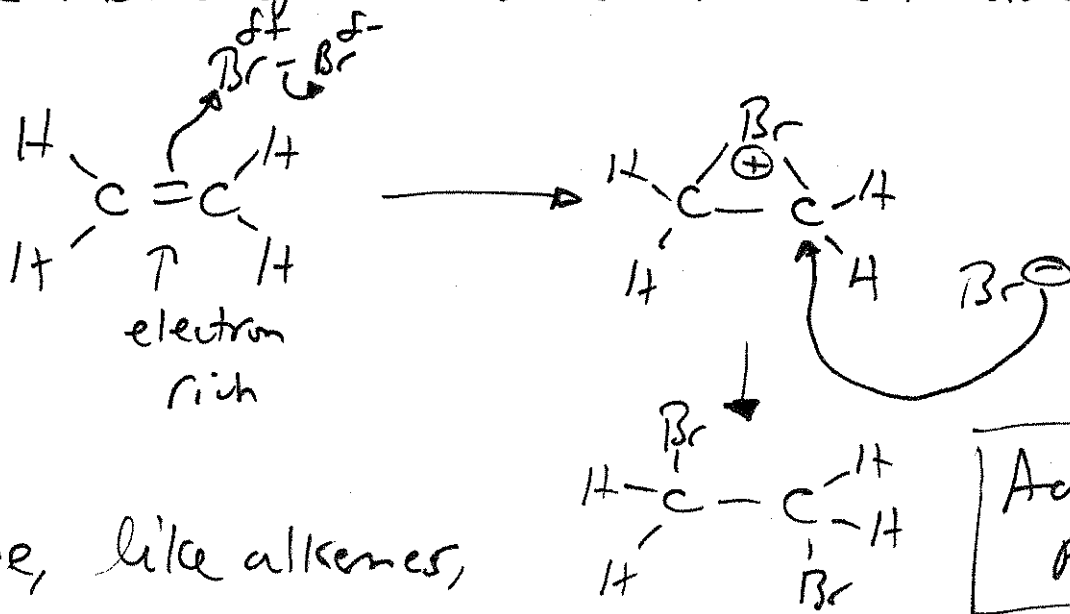 δ+ δ-
Br - Br
H H
C = C
H H
↑
electron
rich
Br
⊕
H H
C — C
H H
Br ⊖
Br
H H
C — C
H H
Br
e, like alkenes,